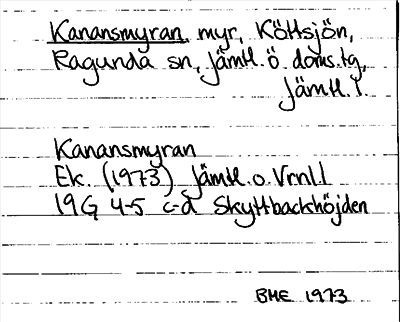 Kanansmyran, myr, Köttsjön,
Ragunda sn, Jämtl. ö. doms.tg,
Jämtl. l.
Kanansmyran
Ek. (1973) Jämtl. o. Vrnl. l
19G 4-5 c-d Skyttbackhöjden
BME 1973